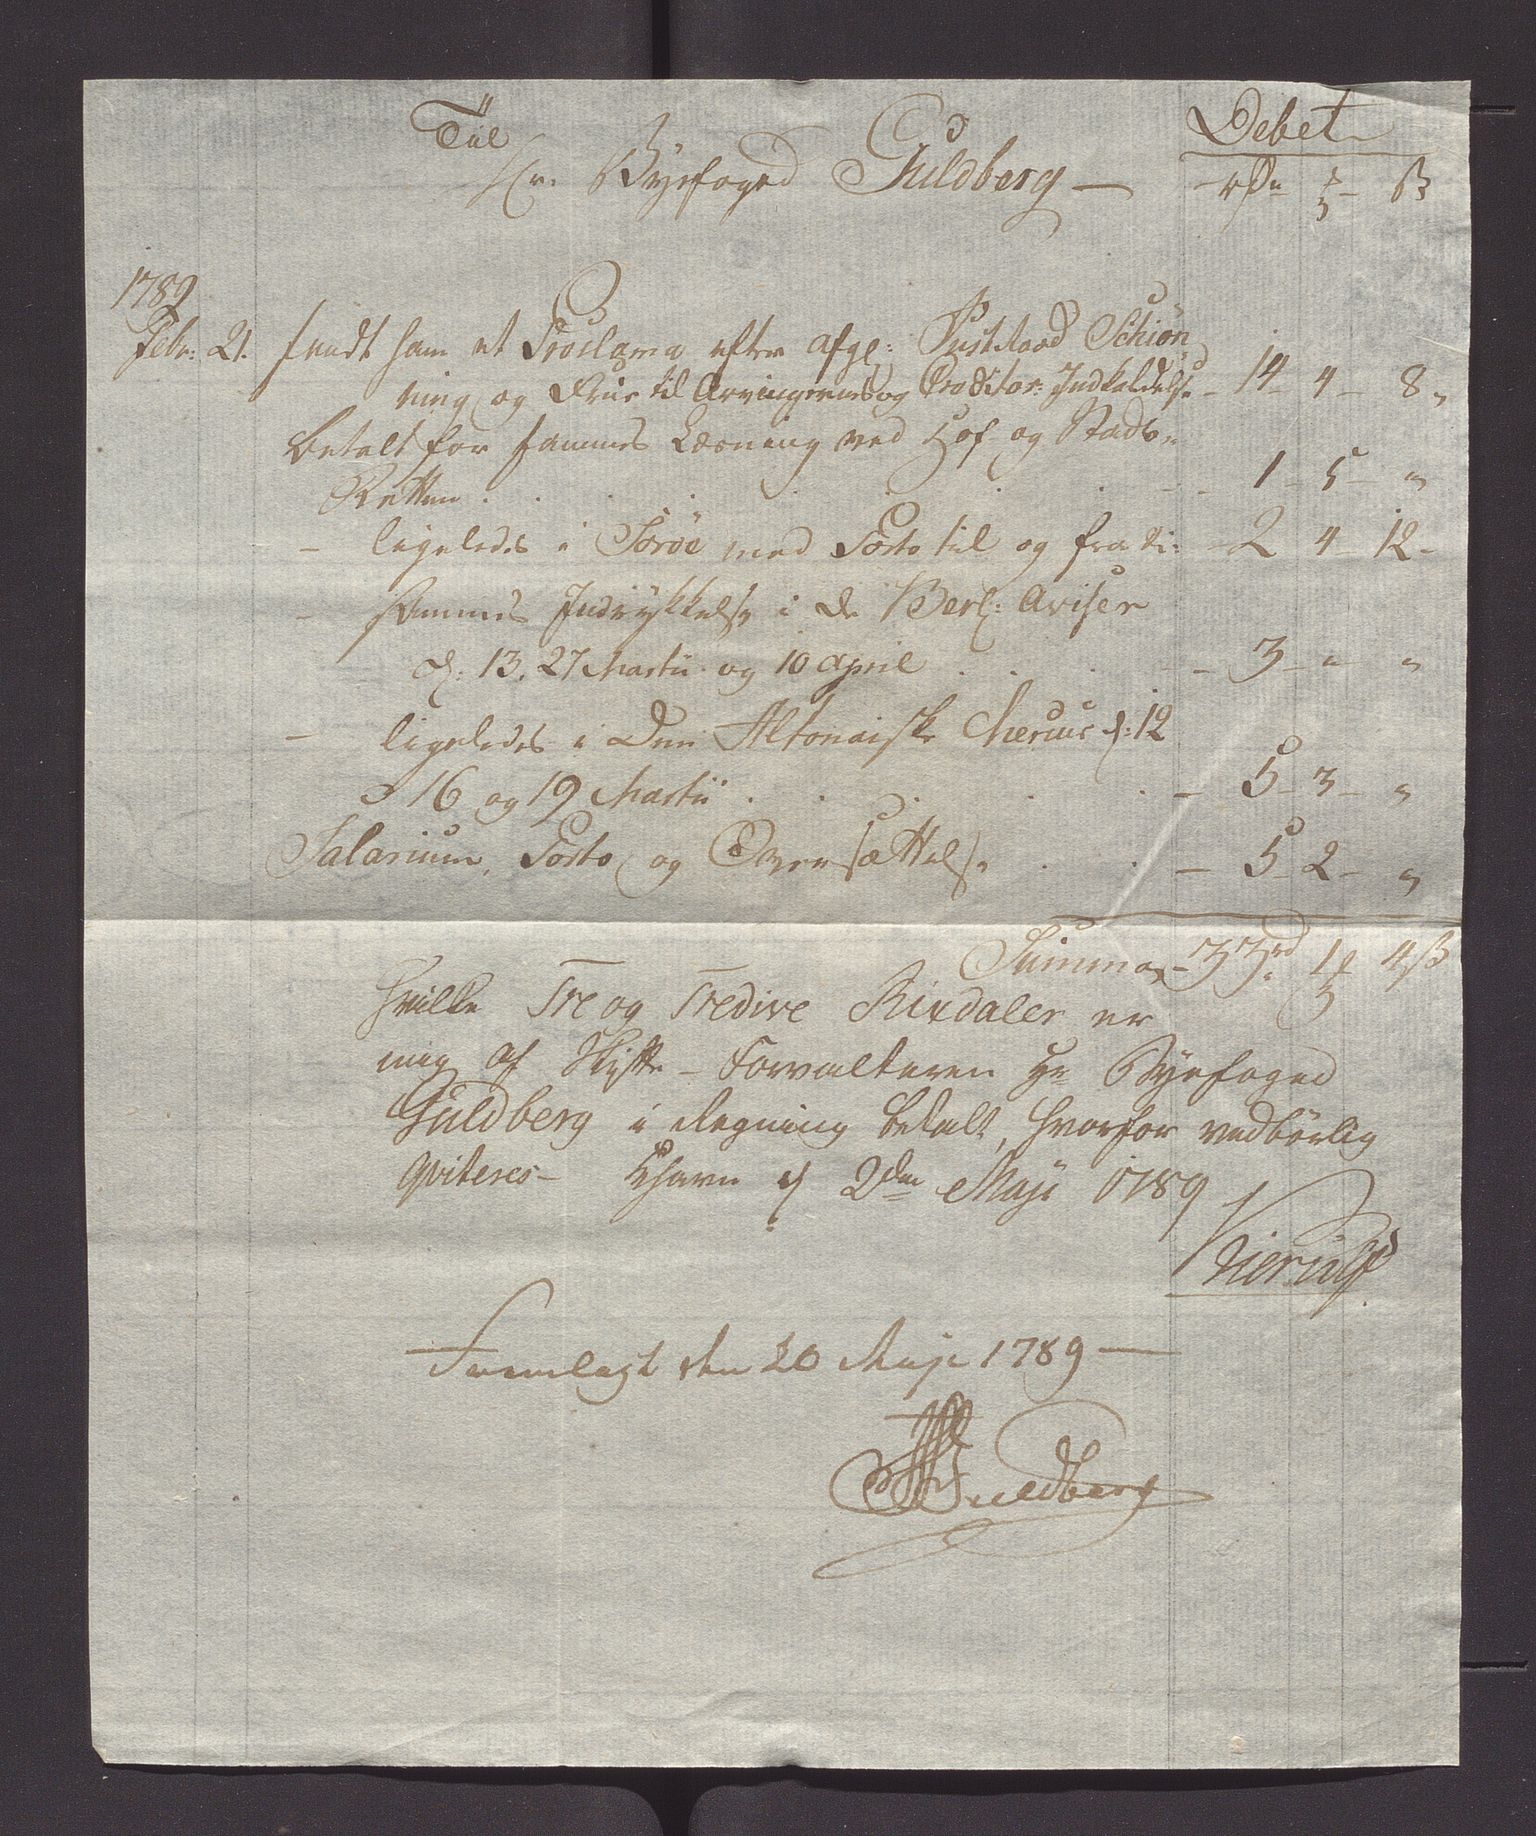 Til
Debet
Hr. Byefoged Guldberg —
rdr mk ß
1789
Febr: 21. sendt ham et Proclama efter afg: Justitsraad Schiön
ning og Frue til Arvingernes og Creditor: Indkaldelse - 14 - 4 - 8 "
betalt for sammes Læsning ved Hof- og Stads-
Retten . . . . . . - - 1 - 5 - "
— ligeledes i Soröe med Porto til og fra di: - 2 4 - 12 -
— sammes Indrykkelse i de Berl: Aviser
d: 13. 27 Martii og 10 April . . . - - 3 - " "
— ligeledes i Den Altonaiske Mercur d: 12
16 og 19 Martii . . . . . — 5 - 3 - "
Salarium, Porto og Oversættelse . . — 5 - 2 - "
Summa - 33 rd 1 mk 4 ß
hvilke Tre og Tredive Rixdaler er
mig af Skifte-Forvalteren Hr Byefoged
Guldberg i Regning betalt, hvorfor vedbörlig
qviteres — Khavn d 2den Maji 1789
Kierulf
Fremlagt den 20 Maji 1789 —
Guldberg